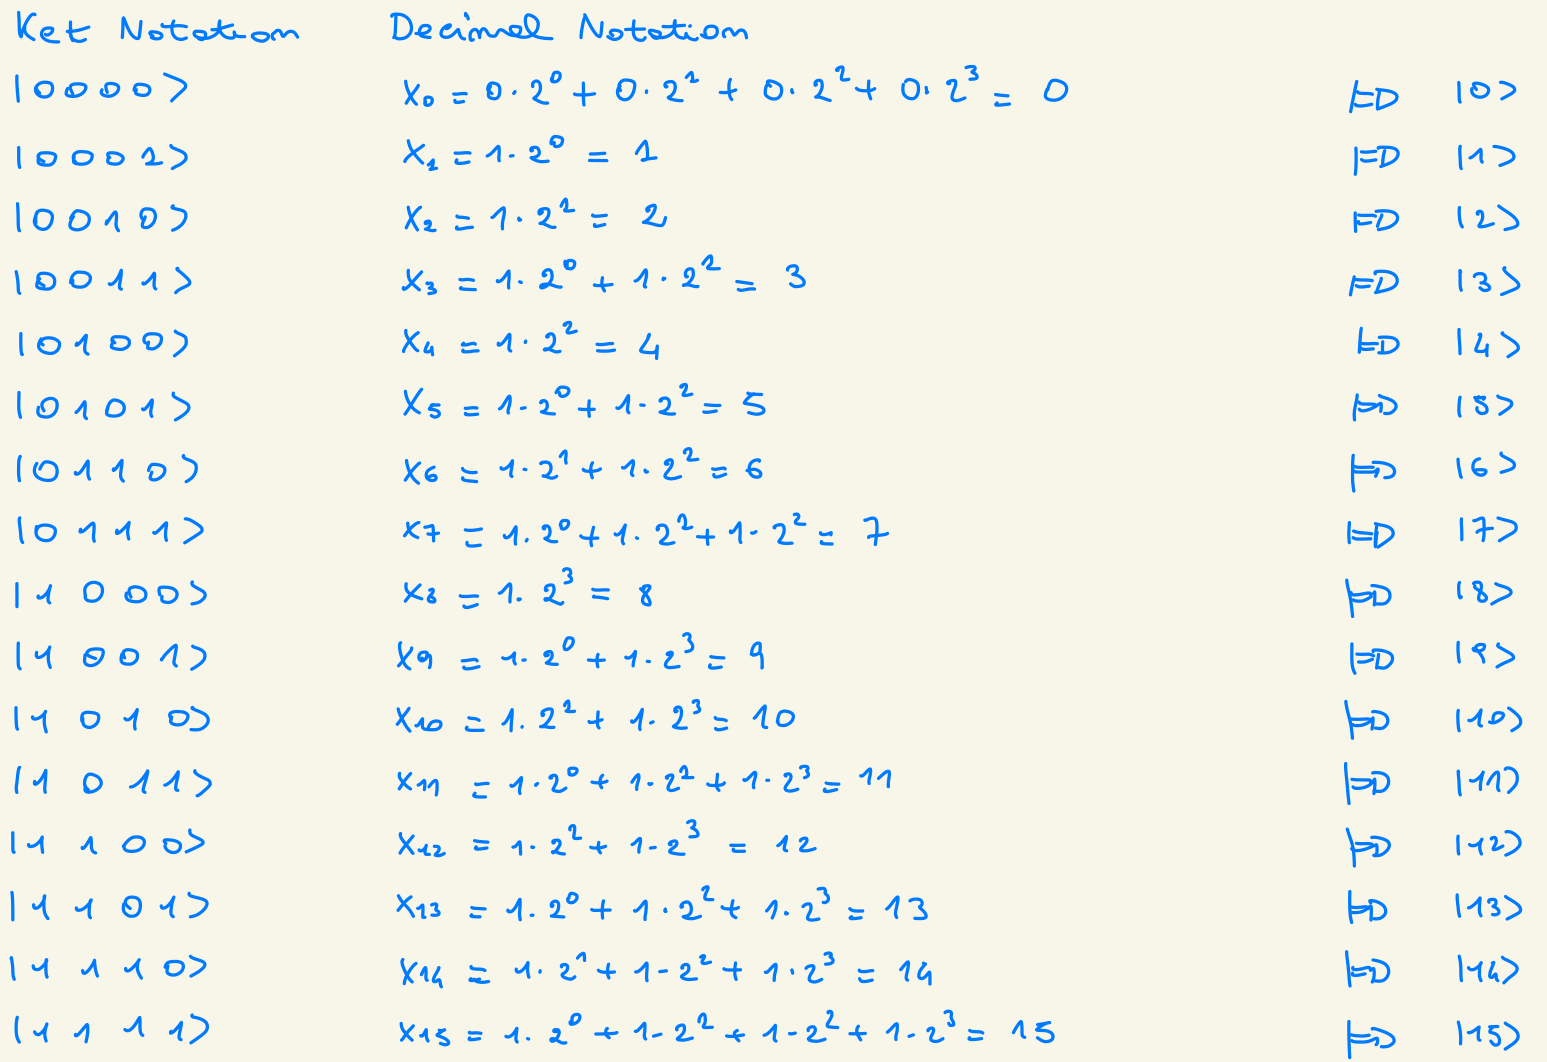 Ket Notation Decimal Notation
|0000> x₀ = 0·2⁰ + 0·2¹ + 0·2² + 0·2³ = 0 ⊨D |0>
|0001> x₁ = 1·2⁰ = 1 ⊨D |1>
|0010> x₂ = 1·2¹ = 2 ⊨D |2>
|0011> x₃ = 1·2⁰ + 1·2¹ = 3 ⊨D |3>
|0100> x₄ = 1·2² = 4 ⊨D |4>
|0101> x₅ = 1·2⁰ + 1·2² = 5 ⊨D |5>
|0110> x₆ = 1·2¹ + 1·2² = 6 ⊨D |6>
|0111> x₇ = 1·2⁰ + 1·2¹ + 1·2² = 7 ⊨D |7>
|1000> x₈ = 1·2³ = 8 ⊨D |8>
|1001> x₉ = 1·2⁰ + 1·2³ = 9 ⊨D |9>
|1010> x₁₀ = 1·2¹ + 1·2³ = 10 ⊨D |10>
|1011> x₁₁ = 1·2⁰ + 1·2¹ + 1·2³ = 11 ⊨D |11>
|1100> x₁₂ = 1·2² + 1·2³ = 12 ⊨D |12>
|1101> x₁₃ = 1·2⁰ + 1·2² + 1·2³ = 13 ⊨D |13>
|1110> x₁₄ = 1·2¹ + 1·2² + 1·2³ = 14 ⊨D |14>
|1111> x₁₅ = 1·2⁰ + 1·2¹ + 1·2² + 1·2³ = 15 ⊨D |15>